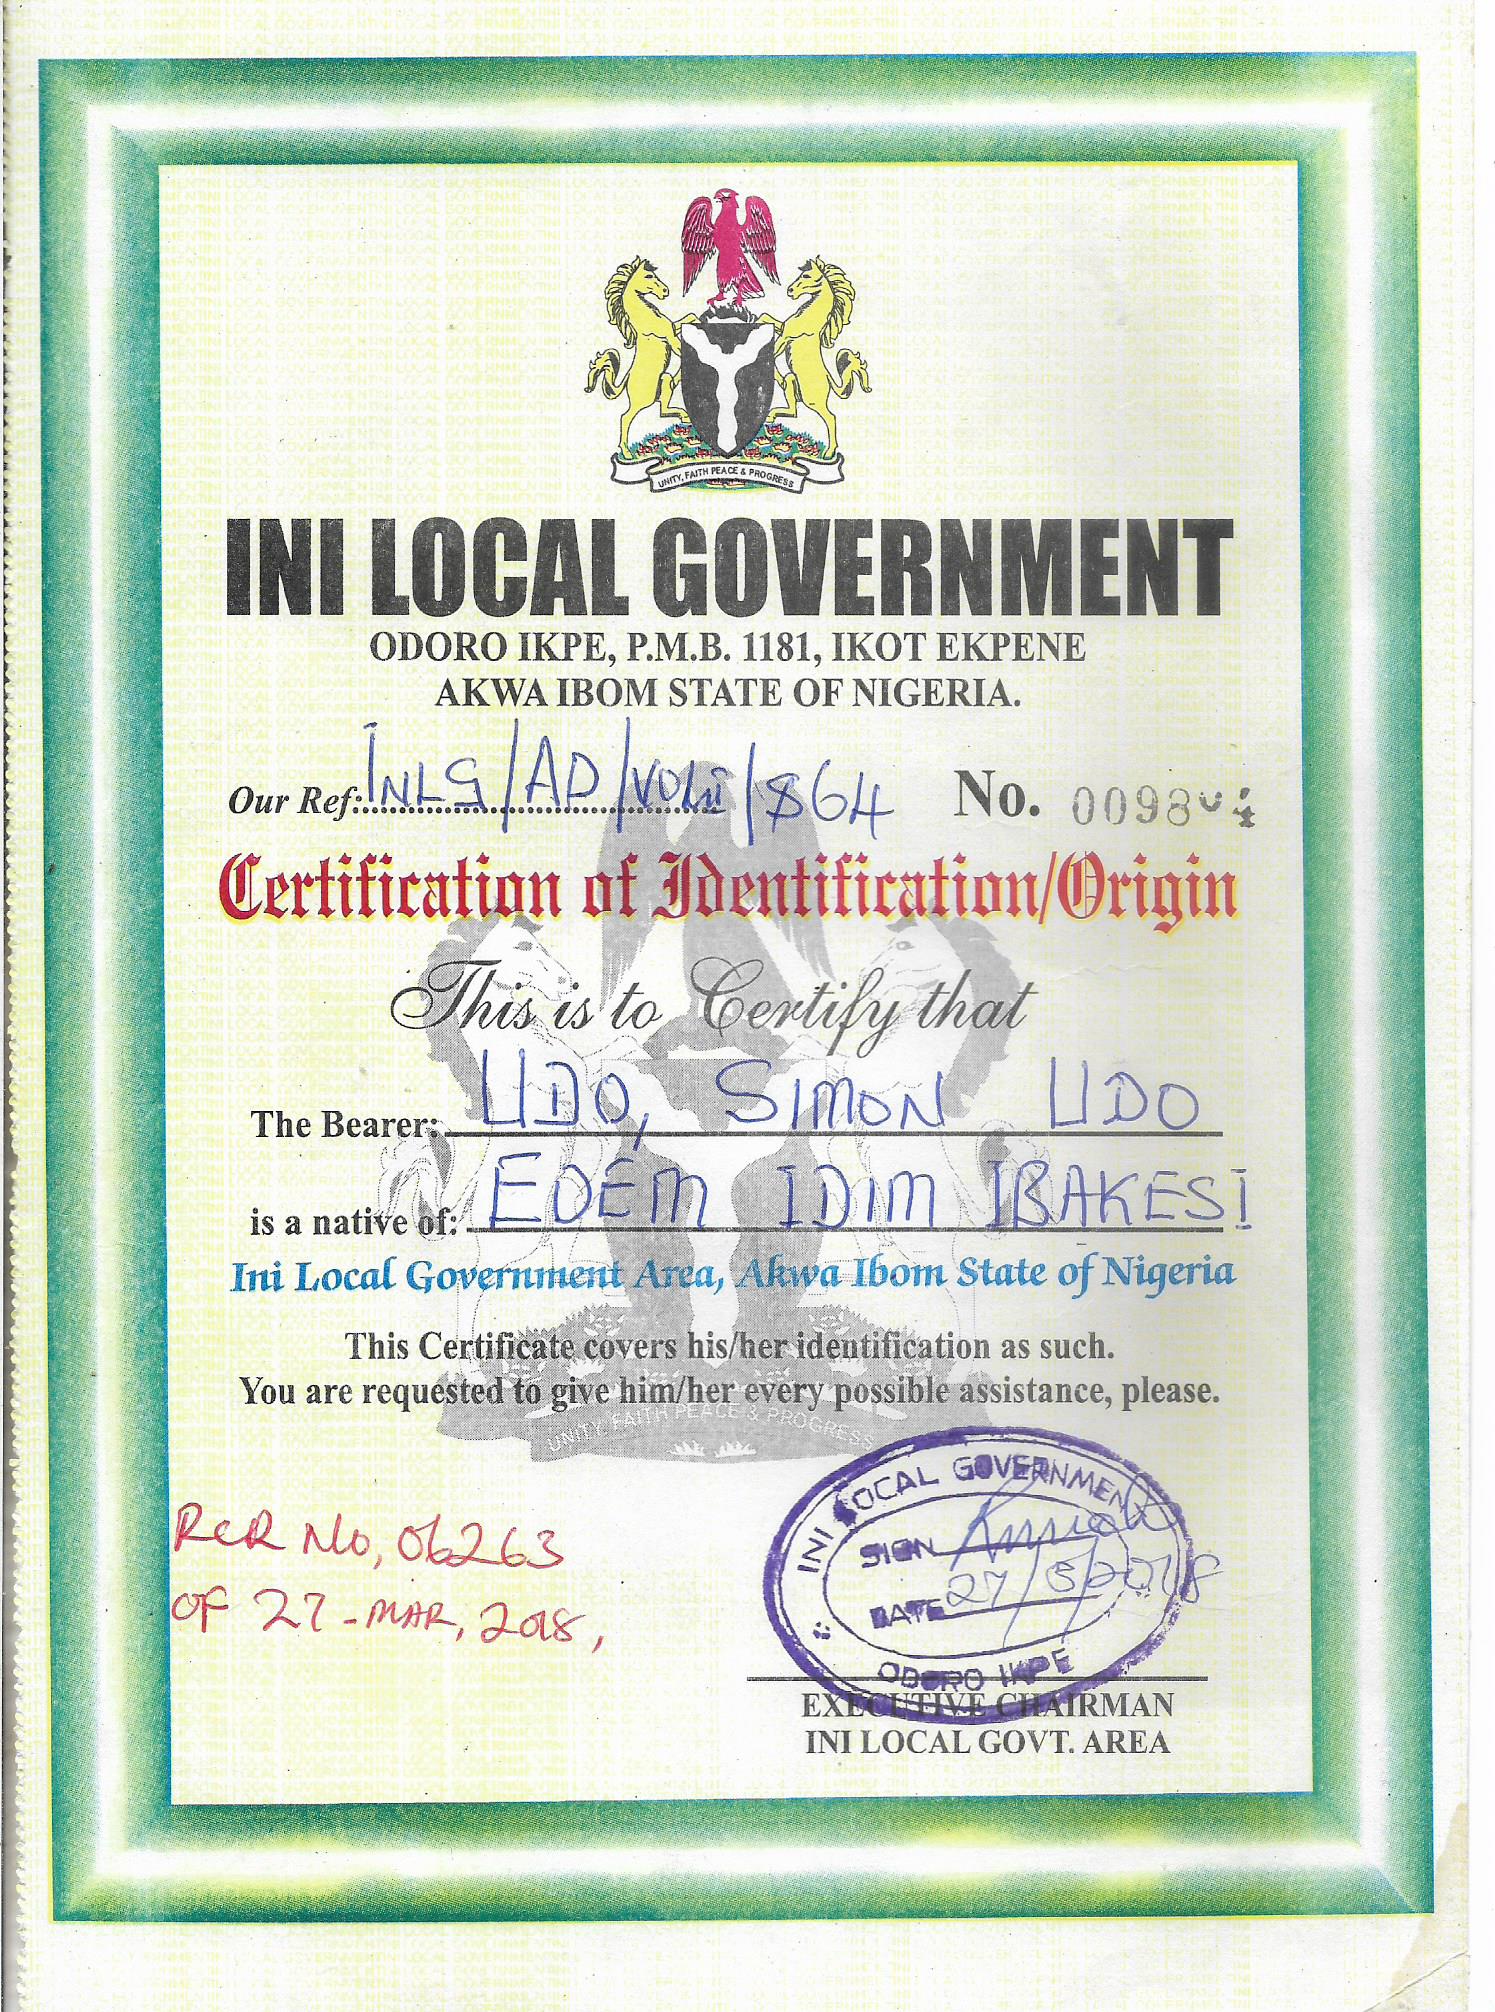 UNITY, FAITH PEACE & PROGRESS
INI LOCAL GOVERNMENT
ODORO IKPE, P.M.B. 1181, IKOT EKPENE
AKWA IBOM STATE OF NIGERIA.
Our Ref: INLG/AD/VOLii/864 No.
Certification of Identification/Origin
This is to Certify that
The Bearer: UDO, SIMON UDO
is a native of: EDEM IDIM IBAKESI
Ini Local Government Area, Akwa Ibom State of Nigeria
This Certificate covers his/her identification as such.
You are requested to give him/her every possible assistance, please.
UNITY, FAITH PEACE & PROGRESS
RCR No, 06263
OF 27-MAR, 2018,
INI LOCAL GOVERNMENT
SIGN
DATE
ODORO IKPE
EXECUTIVE CHAIRMAN
INI LOCAL GOVT. AREA